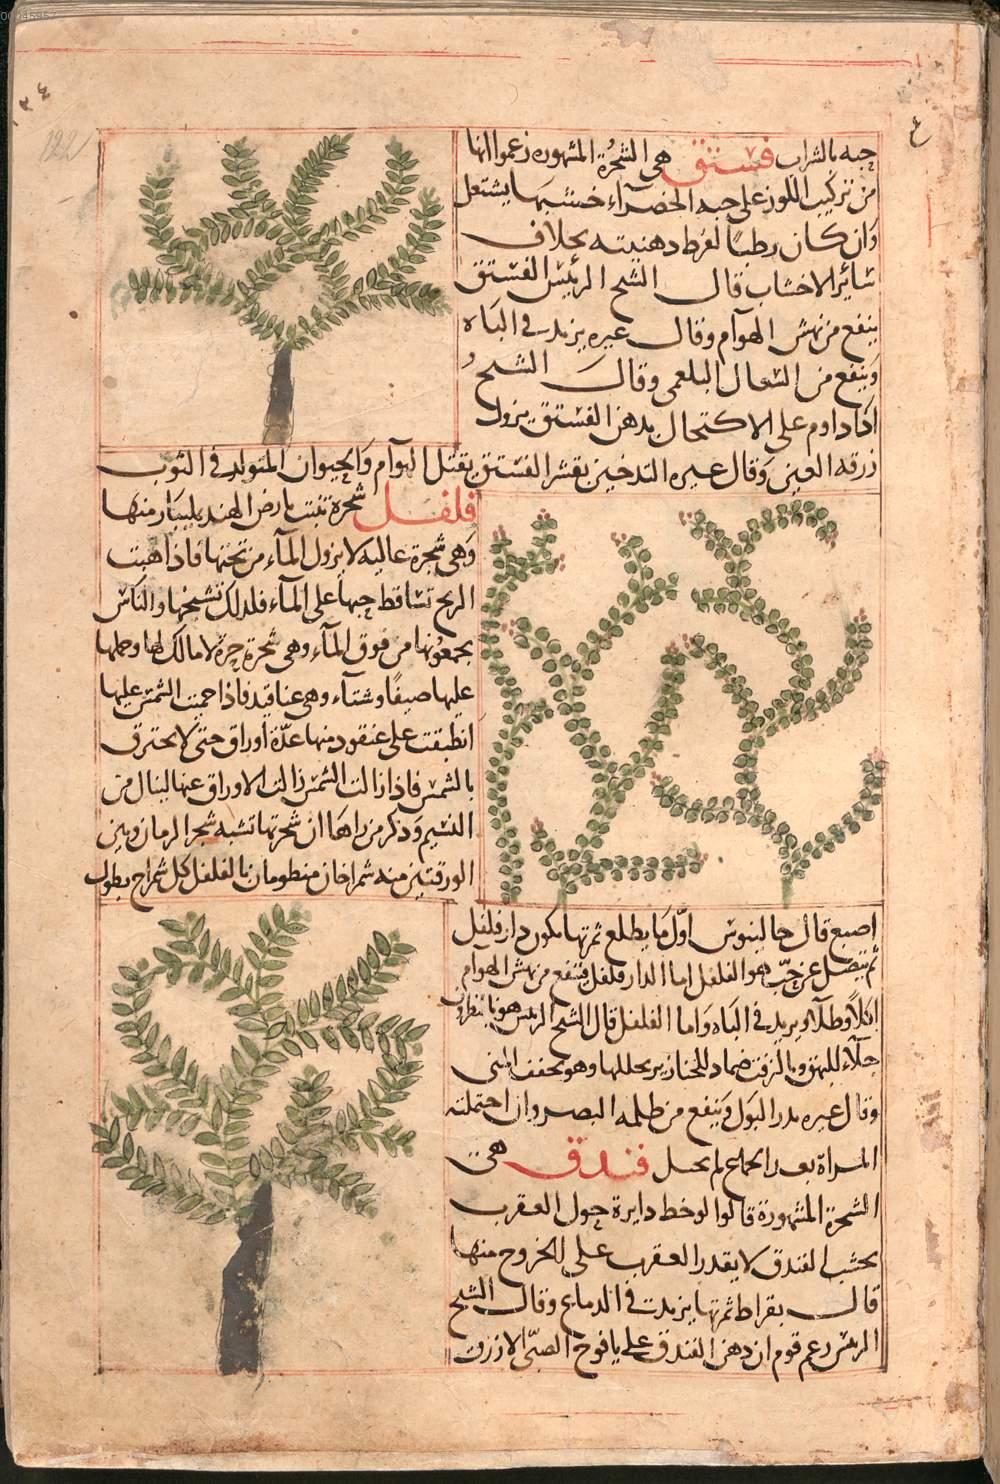 حبه بالشراب فستق هى الشجرة المشهوره زعموا انها
من تركيب اللوز على حبه الخضرآء خشبها يشتعل
وان كان رطبا لفرط دهنيته بخلاف
سائر الاخشاب قال الشيخ الرئيس الفستق
ينفع من نهش الهوآم وقال غيره يزيد فى الباه
وينفع من السعال البلغمى وقال الشيخ
اذا داوم على الاكتحال بدهن الفستق يزول
زرقه العين وقال غيره التدخين بقشر الفستق يقتل الهوآم والحيوان المتولد فى الثوب
فلفل شجرة تنبت بارض الهند بمليبار منها
وهى شجرة عاليه لا يزول المآء من تحتها فاذا هبت
الريح تساقط حبها على المآء فلذلك تشنجها والناس
يجمعونها من فوق المآء وهى شجرة حرة لا مالك لها وحملها
عليها صيفا وشتآء وهى عناقيد فاذا حميت الشمس عليها
انطبقت على عنقود منها عدّة اوراق حتى لا يحترق
بالشمس فاذا زالت الشمس زالت الاوراق عنها لينال من
النسيم وذكر من راها ان شجرتها تشبه شجر الرمان وبين
الورقتين منه شمراخان منظومان بالفلفل كل شمراخ بطول
اصبع قال جالينوس اوّل ما يطلع ثمرتها يكون دار فلفل
ثم ينفصل عن حبّ هو الفلفل اما الدار فلفل فينفع من نهش الهوام
اكلاً وطلآء ويزيد فى الباه واما الفلفل قال الشيخ الرئيس هو بالنطرون
جلآء للبهق وبالزفت ضماد للخنازير يحللها وهو يجفف المنى
وقال غيره يدر البول وينفع من ظلمه البصر وان احتملته
المراة بعد الجماع لم تحبل فندق هى
الشجرة المشهورة قالوا لو خط دايرة حول العقرب
بخشب الفندق لا يقدر العقرب على الخروج منها
قال بقراط ثمرتها يزيد فى الدماغ وقال الشيخ
الرئيس زعم قوم ان دهن الفندق على يافوخ الصبى الازرق
122